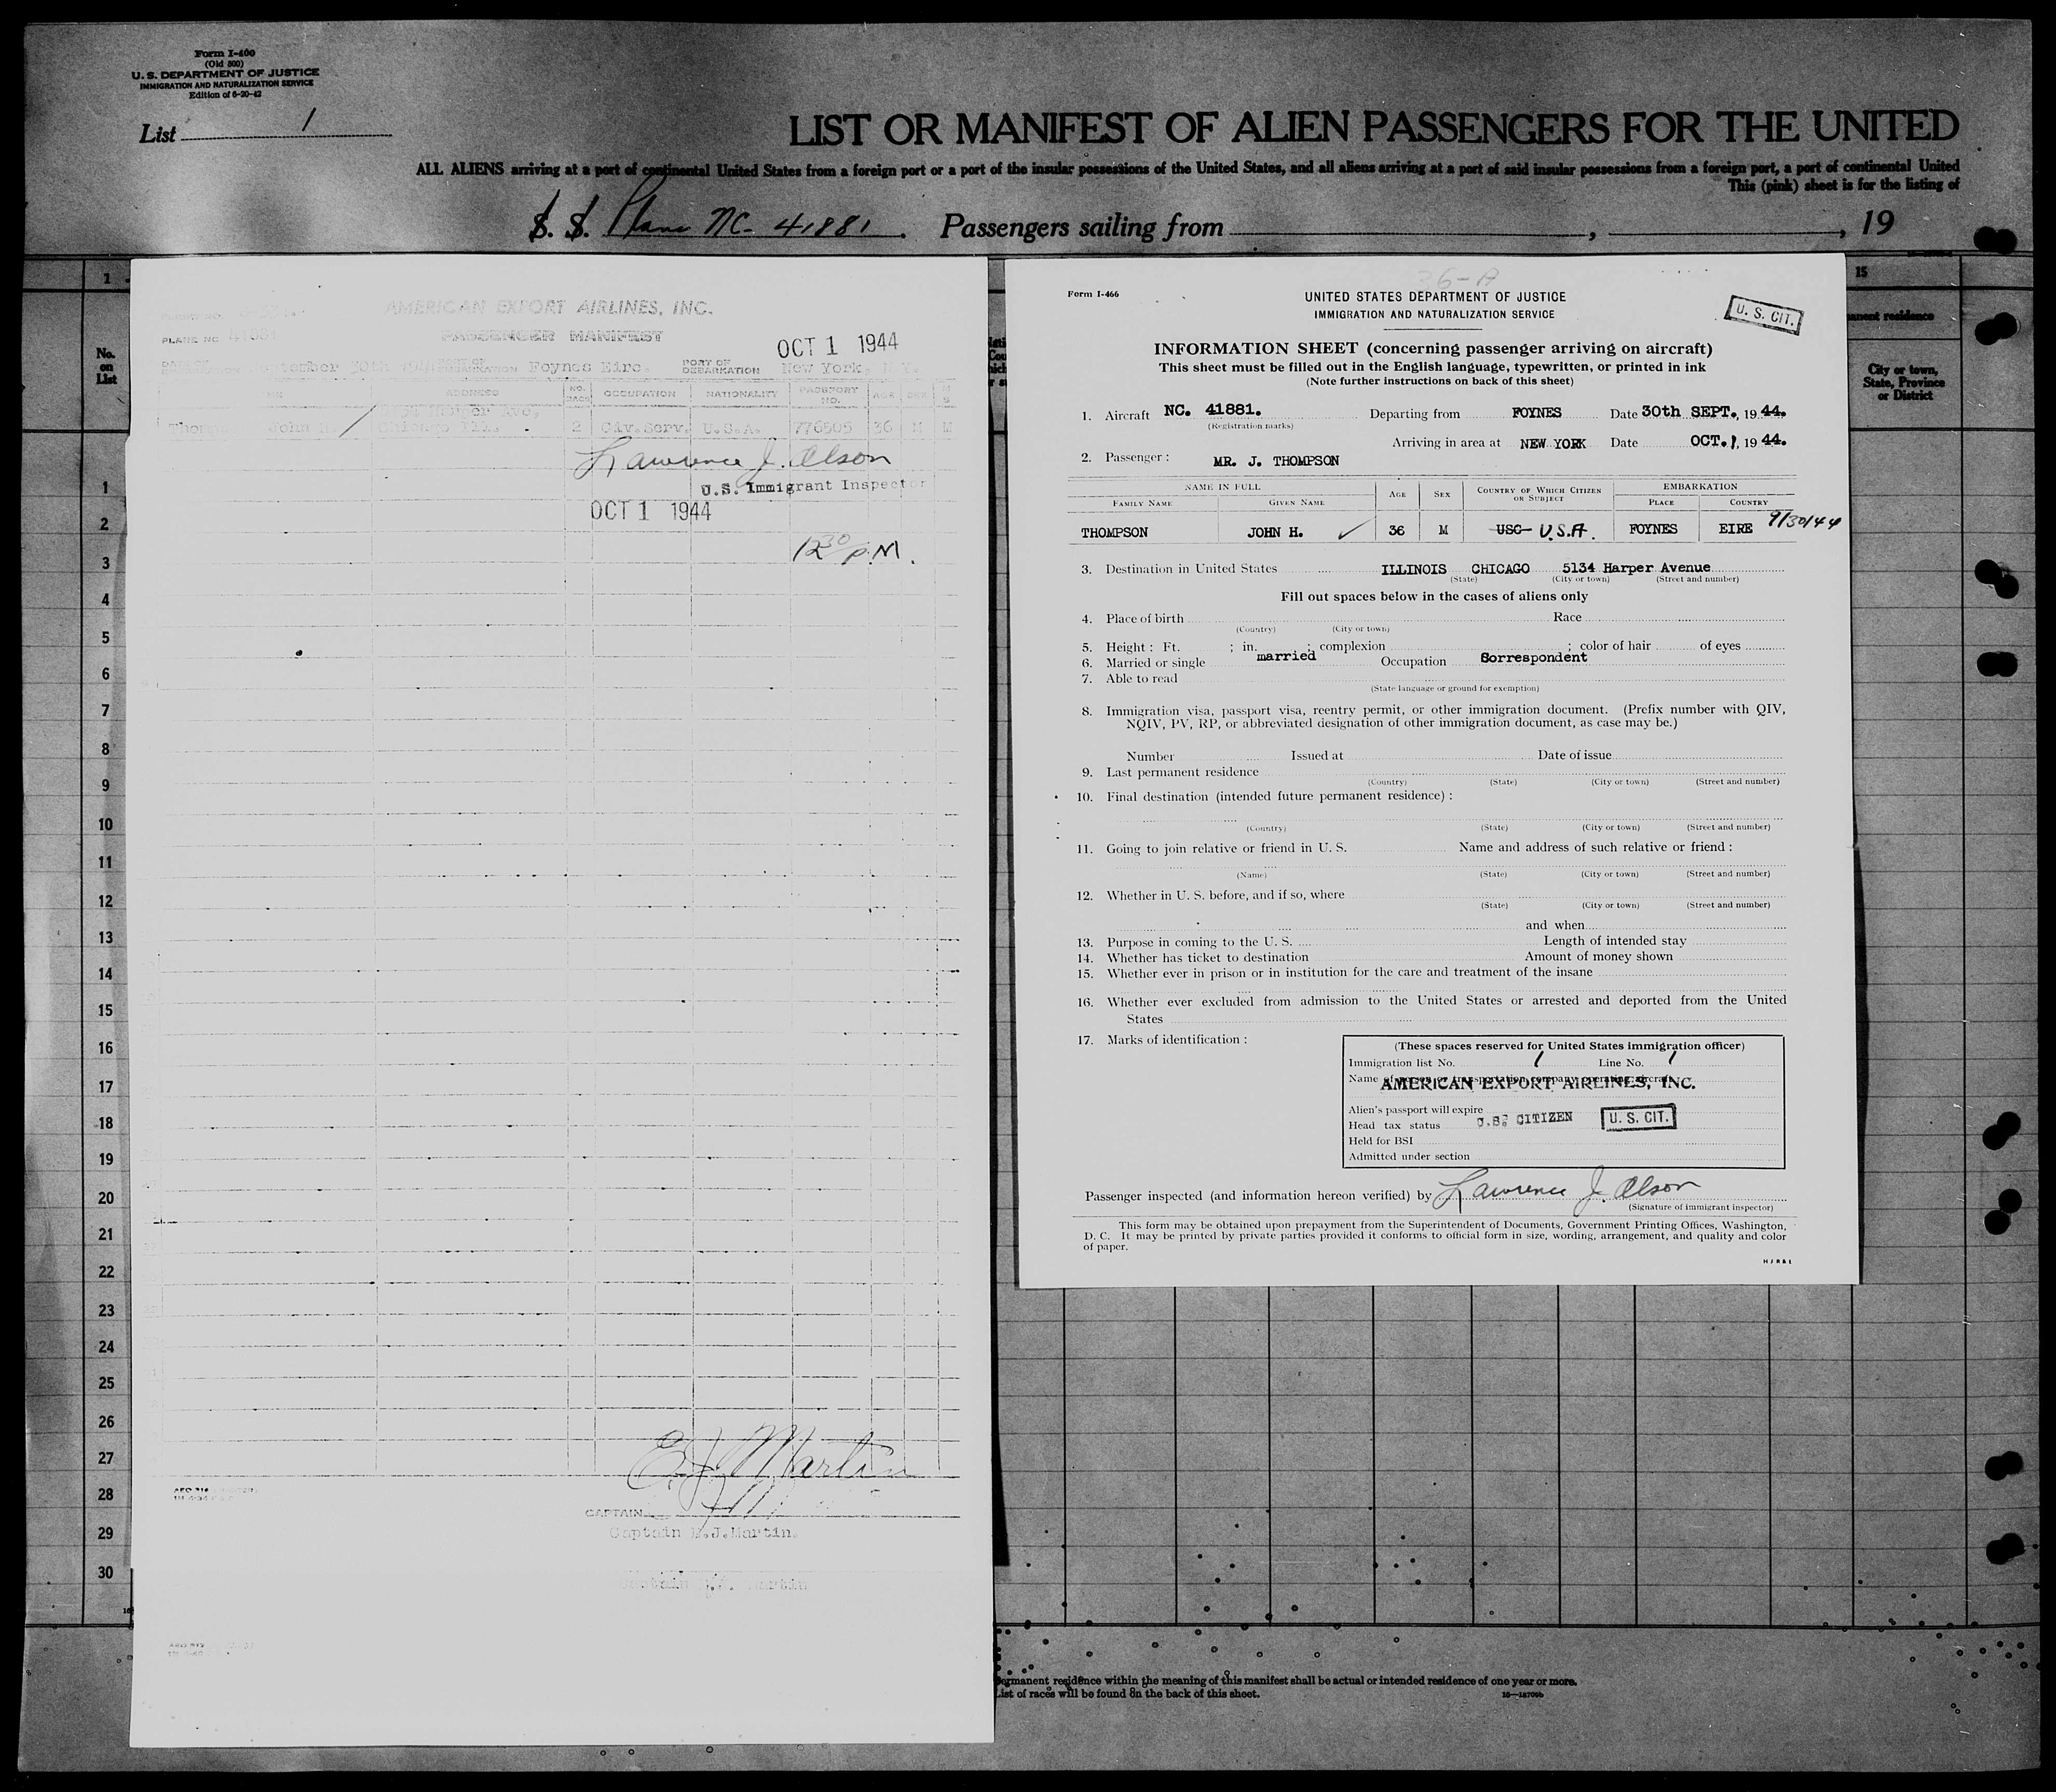 Form I-400
(Old 500)
U. S. DEPARTMENT OF JUSTICE
IMMIGRATION AND NATURALIZATION SERVICE
Edition of 6-20-42
List 1
LIST OR MANIFEST OF ALIEN PASSENGERS FOR THE UNITED
ALL ALIENS arriving at a port of continental United States from a foreign port or a port of the insular possessions of the United States, and all aliens arriving at a port of said insular possessions from a foreign port, a port of continental United
This (pink) sheet is for the listing of
S. S. Plane NC- 41881. Passengers sailing from , , 19
1
No.
on
List
1
2
3
4
5
6
7
8
9
10
11
12
13
14
15
16
17
18
19
20
21
22
23
24
25
26
27
28
29
30
AMERICAN EXPORT AIRLINES, INC.
PLANE NO 41881
PASSENGER MANIFEST
OCT 1 1944
September 30th Foynes Eire. PORT OF DEBARKATION New York, N.Y.
ADDRESS OCCUPATION NATIONALITY PASSPORT NO. AGE SEX
5134 Harper Ave,
John H. / Chicago Ill. 2 Civ.Serv. U.S.A. 776505 36 M M
Lawrence J. Olson
U.S. Immigrant Inspector
OCT 1 1944
12 30 P.M.
E J Martin
CAPTAIN
Captain E.J.Martin.
Form I-466
36-A
UNITED STATES DEPARTMENT OF JUSTICE
IMMIGRATION AND NATURALIZATION SERVICE
U. S. CIT.
INFORMATION SHEET (concerning passenger arriving on aircraft)
This sheet must be filled out in the English language, typewritten, or printed in ink
(Note further instructions on back of this sheet)
1. Aircraft NC. 41881. Departing from FOYNES Date 30th SEPT., 1944.
(Registration marks)
Arriving in area at NEW YORK Date OCT. 1, 1944.
2. Passenger : MR. J. THOMPSON
NAME IN FULL AGE SEX COUNTRY OF WHICH CITIZEN OR SUBJECT EMBARKATION
FAMILY NAME GIVEN NAME PLACE COUNTRY
THOMPSON JOHN H. ✓ 36 M USC U.S.A. FOYNES EIRE 9/30/44
3. Destination in United States ILLINOIS CHICAGO 5134 Harper Avenue
(State) (City or town) (Street and number)
Fill out spaces below in the cases of aliens only
4. Place of birth Race
(Country) (City or town)
5. Height : Ft. ; in. ; complexion ; color of hair of eyes
6. Married or single married Occupation Correspondent
7. Able to read
(State language or ground for exemption)
8. Immigration visa, passport visa, reentry permit, or other immigration document. (Prefix number with QIV,
NQIV, PV, RP, or abbreviated designation of other immigration document, as case may be.)
Number Issued at Date of issue
9. Last permanent residence
(Country) (State) (City or town) (Street and number)
10. Final destination (intended future permanent residence) :
(Country) (State) (City or town) (Street and number)
11. Going to join relative or friend in U. S. Name and address of such relative or friend :
(Name) (State) (City or town) (Street and number)
12. Whether in U. S. before, and if so, where
(State) (City or town) (Street and number)
and when
13. Purpose in coming to the U. S. Length of intended stay
14. Whether has ticket to destination Amount of money shown
15. Whether ever in prison or in institution for the care and treatment of the insane
16. Whether ever excluded from admission to the United States or arrested and deported from the United
States
17. Marks of identification :
(These spaces reserved for United States immigration officer)
Immigration list No. 1 Line No. 1
AMERICAN EXPORT AIRLINES, INC.
Alien's passport will expire
Head tax status U.S. CITIZEN U. S. CIT.
Held for BSI
Admitted under section
Passenger inspected (and information hereon verified) by Lawrence J. Olson
(Signature of immigrant inspector)
This form may be obtained upon prepayment from the Superintendent of Documents, Government Printing Offices, Washington,
D. C. It may be printed by private parties provided it conforms to official form in size, wording, arrangement, and quality and color
of paper.
15
permanent residence
City or town,
State, Province
or District
permanent residence within the meaning of this manifest shall be actual or intended residence of one year or more.
List of races will be found on the back of this sheet.